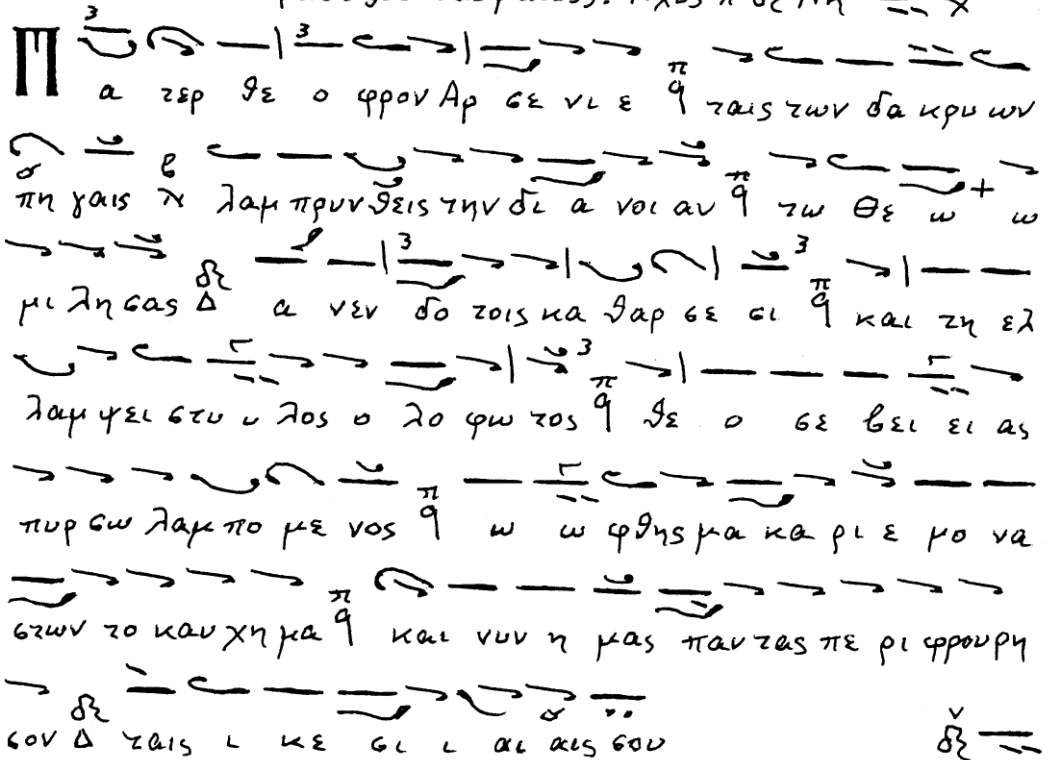 Ἦχος π δι Νη χ
Π α τερ θε ο φρον Αρ σε νι ε π q ταις των δα κρυ ων
πη γαις λαμ πρυν θεις την δι α νοι αν π q τω Θε ω + ω
μι λη σας Δ α νεν δο τοις κα θαρ σε σι π q και τη ελ
λαμ ψει στυ υ λος ο λο φω τος π q θε ο σε βει ει ας
πυρ σω λαμ πο με νος π q ω ω φθης μα κα ρι ε μο να
στων το καυ χη μα π q και νυν η μας παν τας πε ρι φρου ρη
σον Δ ταις ι κε σι ι αι αις σου